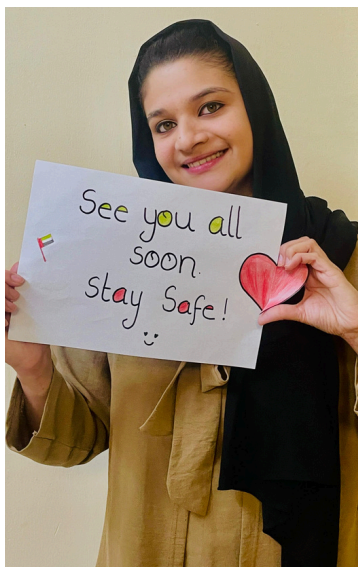 See you all
soon.
Stay Safe!